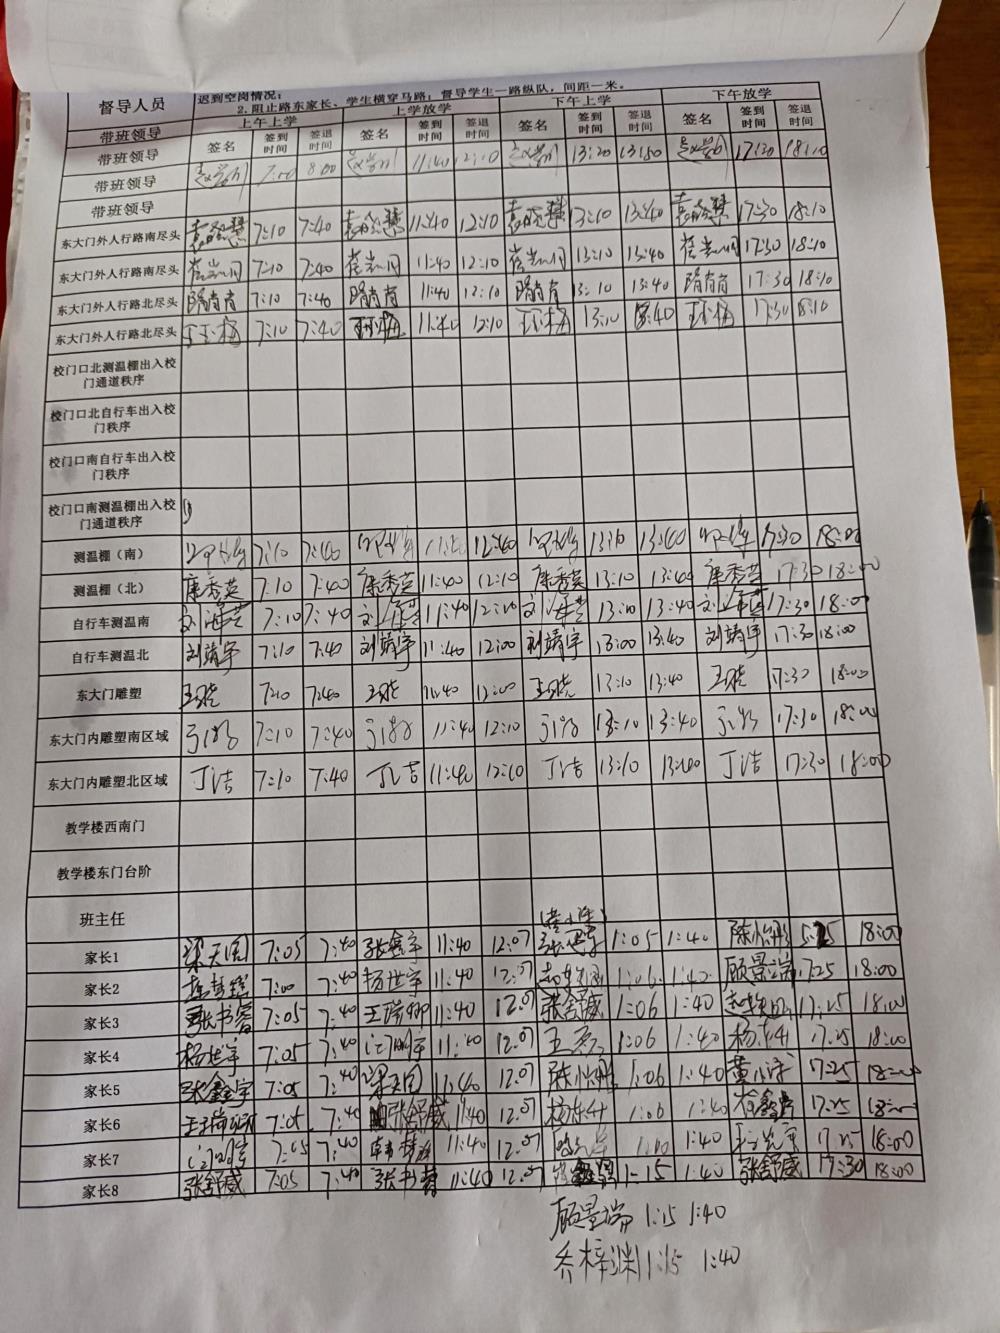 督导人员 迟到空岗情况：
2. 阻止路东家长、学生横穿马路；督导学生一路纵队，间距一米。
带班领导 上午上学 上学放学 下午上学 下午放学
签名 签到时间 签退时间 签名 签到时间 签退时间 签名 签到时间 签退时间 签名 签到时间 签退时间
带班领导 7:00 8:00 11:40 12:10 13:20 13:50 17:30 18:10
带班领导
带班领导
东大门外人行路南尽头 7:10 7:40 11:40 12:10 13:10 13:40 17:30 18:10
东大门外人行路南尽头 7:10 7:40 11:40 12:10 13:10 13:40 17:30 18:10
东大门外人行路北尽头 隋肖肖 7:10 7:40 隋肖肖 11:40 12:10 隋肖肖 13:10 13:40 隋肖肖 17:30 18:10
东大门外人行路北尽头 王玉梅 7:10 7:40 王玉梅 11:40 12:10 王玉梅 13:10 13:40 王玉梅 17:30 18:10
校门口北测温棚出入校门通道秩序
校门口北自行车出入校门秩序
校门口南自行车出入校门秩序
校门口南测温棚出入校门通道秩序
测温棚（南） 7:10 7:40 11:40 12:40 13:10 13:40 17:30 18:00
测温棚（北） 康秀英 7:10 7:40 康秀英 11:40 12:10 康秀英 13:10 13:40 康秀英 17:30 18:00
自行车测温南 刘海芸 7:10 7:40 11:40 12:10 刘海芸 13:10 13:40 17:30 18:00
自行车测温北 刘靖宇 7:10 7:40 刘靖宇 11:40 12:00 刘靖宇 13:00 13:40 刘靖宇 17:30 18:00
东大门雕塑 王晓 7:10 7:40 王晓 11:40 12:00 王晓 13:10 13:40 王晓 17:30 18:00
东大门内雕塑南区域 7:10 7:40 11:40 12:10 13:10 13:40 17:30 18:00
东大门内雕塑北区域 丁洁 7:10 7:40 丁洁 11:40 12:10 丁洁 13:10 13:40 丁洁 17:30 18:00
教学楼西南门
教学楼东门台阶
班主任
家长1 梁天闻 7:05 7:40 张鑫宇 11:40 12:07 1:05 1:40 陈怡彤 18:00
家长2 7:00 7:40 杨世宇 11:40 12:07 1:06 1:40 顾景瑞 7:25 18:00
家长3 张书蓉 7:05 7:40 王瑞卿 11:40 12:07 张舒威 1:06 1:40 17:25 18:00
家长4 杨世宇 7:05 7:40 江明宇 11:40 12:07 1:06 1:40 17:25 18:00
家长5 张鑫宇 7:05 7:40 梁天闻 11:40 12:07 陈怡彤 1:06 1:40 17:25 18:00
家长6 王瑞卿 7:05 7:40 张舒威 11:40 12:07 1:06 1:40 17:25 18:00
家长7 江明宇 7:05 7:40 11:40 12:07 1:40 17:25 18:00
家长8 张舒威 7:05 7:40 张书蓉 11:40 12:07 1:15 1:40 张舒威 17:30 18:00
顾景瑞 1:15 1:40
乔梓渊 1:15 1:40